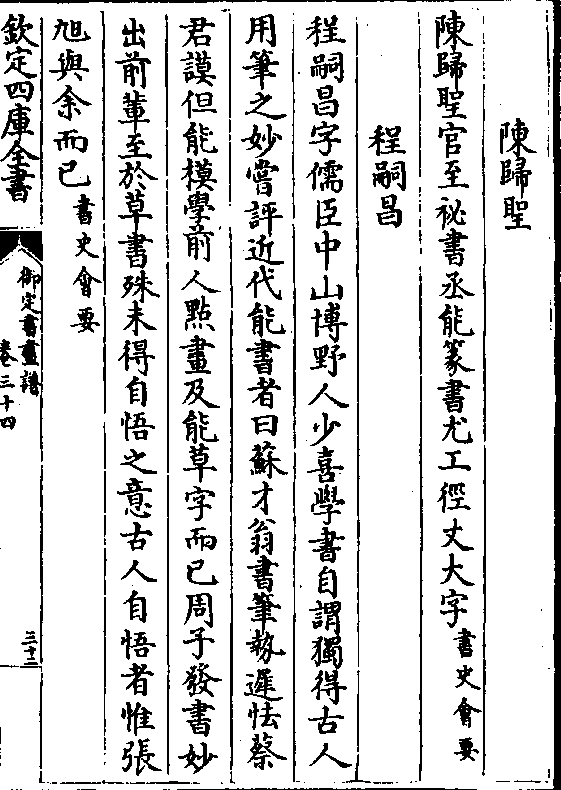 陳歸聖
陳歸聖官至祕書丞能篆書尤工徑丈大字書史會要
程嗣昌
程嗣昌字儒臣中山博野人少喜學書自謂獨得古人
用筆之妙嘗評近代能書者曰蘇才翁書筆埶遲怯蔡
君謨但能模學前人點畫及能草字而已周子發書妙
出前輩至於草書殊未得自悟之意古人自悟者惟張
旭與余而已書史會要
欽定四庫全書
御定書畫譜
卷三十四
三十二